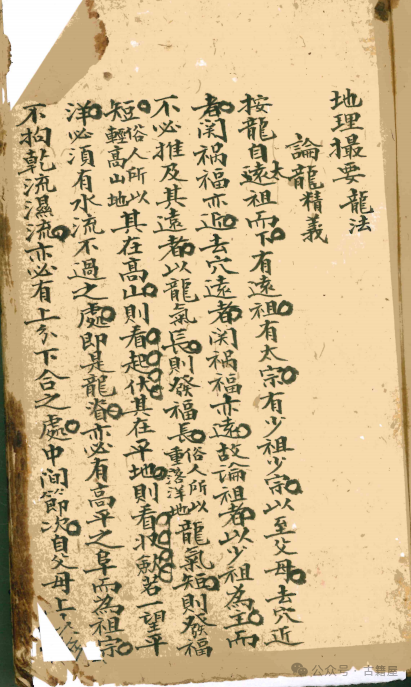 地理撮要 龍法
論龍精義
按龍自太遠祖而下有遠祖有太宗有少祖少宗以至父母去穴近
者関禍福亦近去穴遠者関禍福亦遠故論祖者以少祖為主而
不必推及其遠者以龍氣長則發福長俗人所以重落洋地龍氣短則發福
短俗人所以輕高山地其在高山則看起伏其在平地則看若一望平
洋必須有水流不過之處即是龍脊亦必有高平之阜而為祖宗
不拘乾流濕流亦必有上分下合之處中间節次自父母上
公众号 · 古籍屋